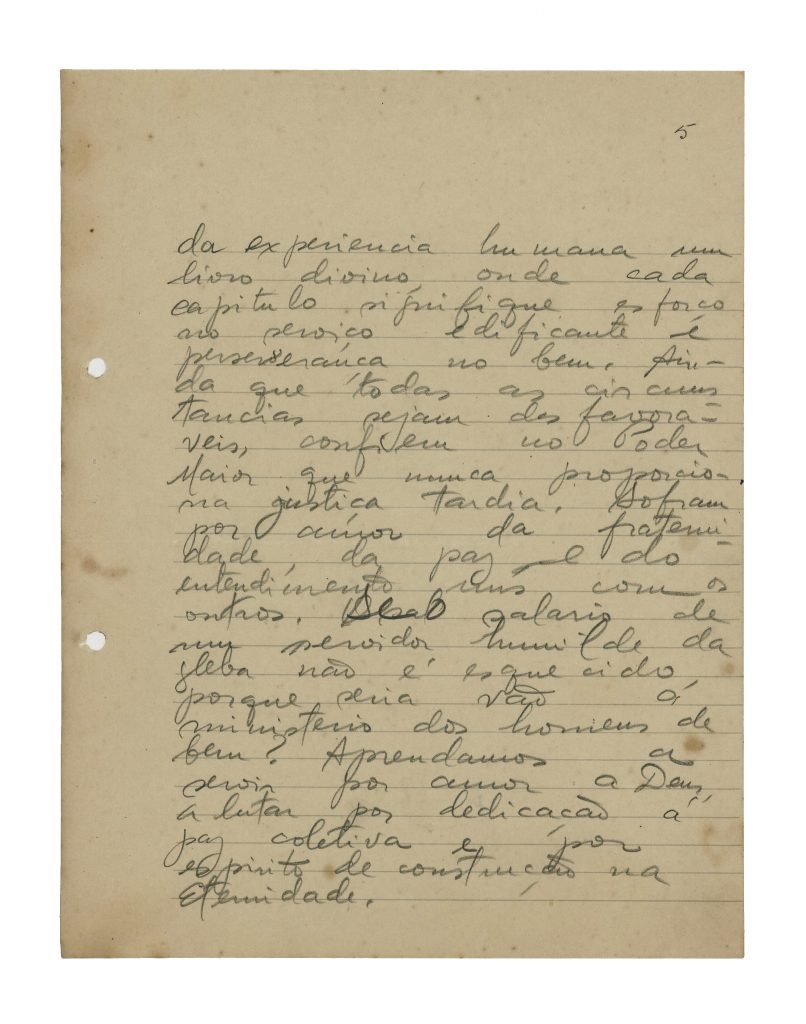 5
da experiencia humana um
livro divino, onde cada
capitulo signifique esforço
no serviço edificante e
perseverança no bem. Ain-
da que todas as circuns-
tancias sejam desfavora-
veis, confiem no Poder
Maior que nunca proporcio-
na justiça tardia. Sofram
por amor da fraterni-
dade, da paz e do
entendimento uns com os
outros. salario de
um servidor humilde da
gleba não é esquecido,
porque seria vão o
ministerio dos homens de
bem? Aprendamos a
servir por amor a Deus,
a lutar por dedicação á
paz coletiva e por
espirito de construcção na
Eternidade.